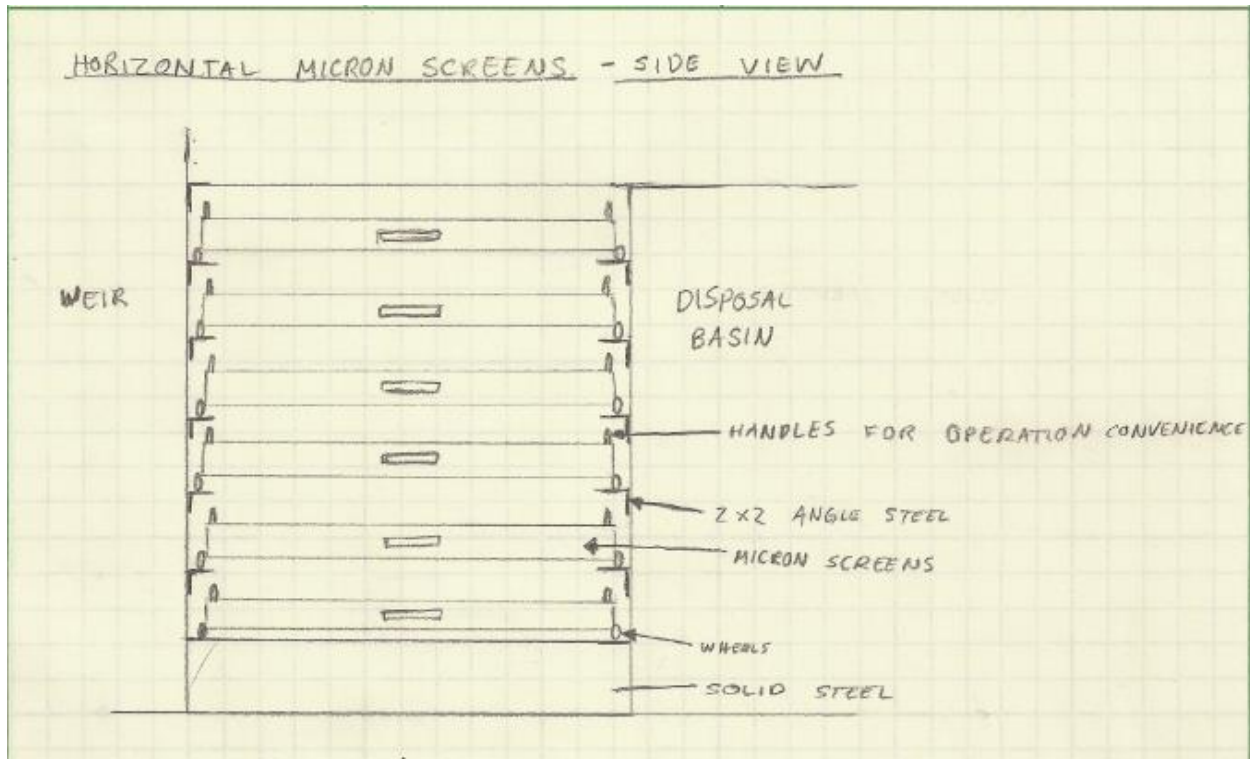 HORIZONTAL MICRON SCREENS - SIDE VIEW
WEIR
DISPOSAL
BASIN
HANDLES FOR OPERATION CONVENIENCE
2X2 ANGLE STEEL
MICRON SCREENS
WHEELS
SOLID STEEL